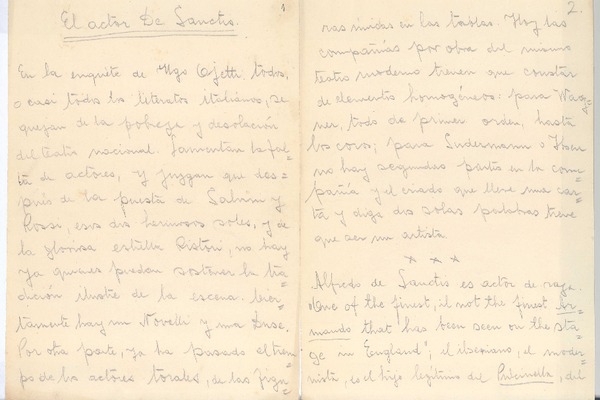 El actor De Sanctis.
1
En la enquête de Ugo Ojetti todos,
o casi todos los literatos italianos, se
quejan de la pobreza y desolación
del teatro nacional. Lamentan la fal-
ta de actores, y juzgan que des-
pués de la puesta de Salvini y
Rossi, esos dos hermosos soles, y de
la gloriosa estrella Ristori, no hay
ya quienes puedan sostener la tra-
dición ilustre de la escena. Cier-
tamente hay un Novelli y una Duse.
Por otra parte, ya ha pasado el tiem-
po de los actores totales, de las figu-
2.
ras únicas en las tablas. Hoy las
compañías por obra del mismo
teatro moderno tienen que constar
de elementos homogéneos: para Wag-
ner, todo de primer orden, hasta
los coros; para Sudermann o Ibsen
no hay segundas partes en la com-
pañía y el criado que lleve una car-
ta y diga dos solas palabras tiene
que ser un artista
* * *
Alfredo de Sanctis es actor de raza.
One of the finest, if not the finest Ar-
mando that has been seen on the sta-
ge in England"; el ibseniano, el moder-
nista, es el hijo legítimo del Pulcinella, del